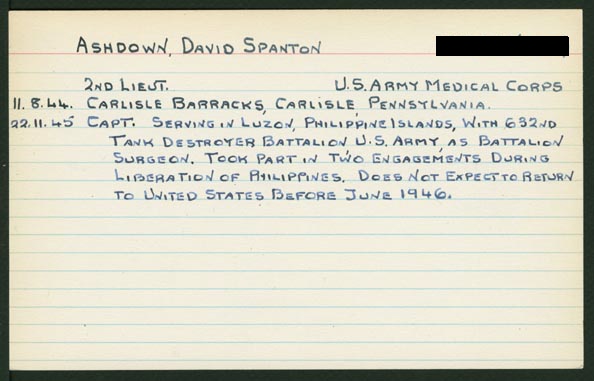 ASHDOWN, DAVID SPANTON
2ND LIEUT. U.S. ARMY MEDICAL CORPS
11.8.44. CARLISLE BARRACKS, CARLISLE, PENNSYLVANIA.
22.11.45 CAPT. SERVING IN LUZON, PHILIPPINE ISLANDS, WITH 632ND
TANK DESTROYER BATTALION U.S. ARMY, AS BATTALION
SURGEON. TOOK PART IN TWO ENGAGEMENTS DURING
LIBERATION OF PHILIPPINES. DOES NOT EXPECT TO RETURN
TO UNITED STATES BEFORE JUNE 1946.